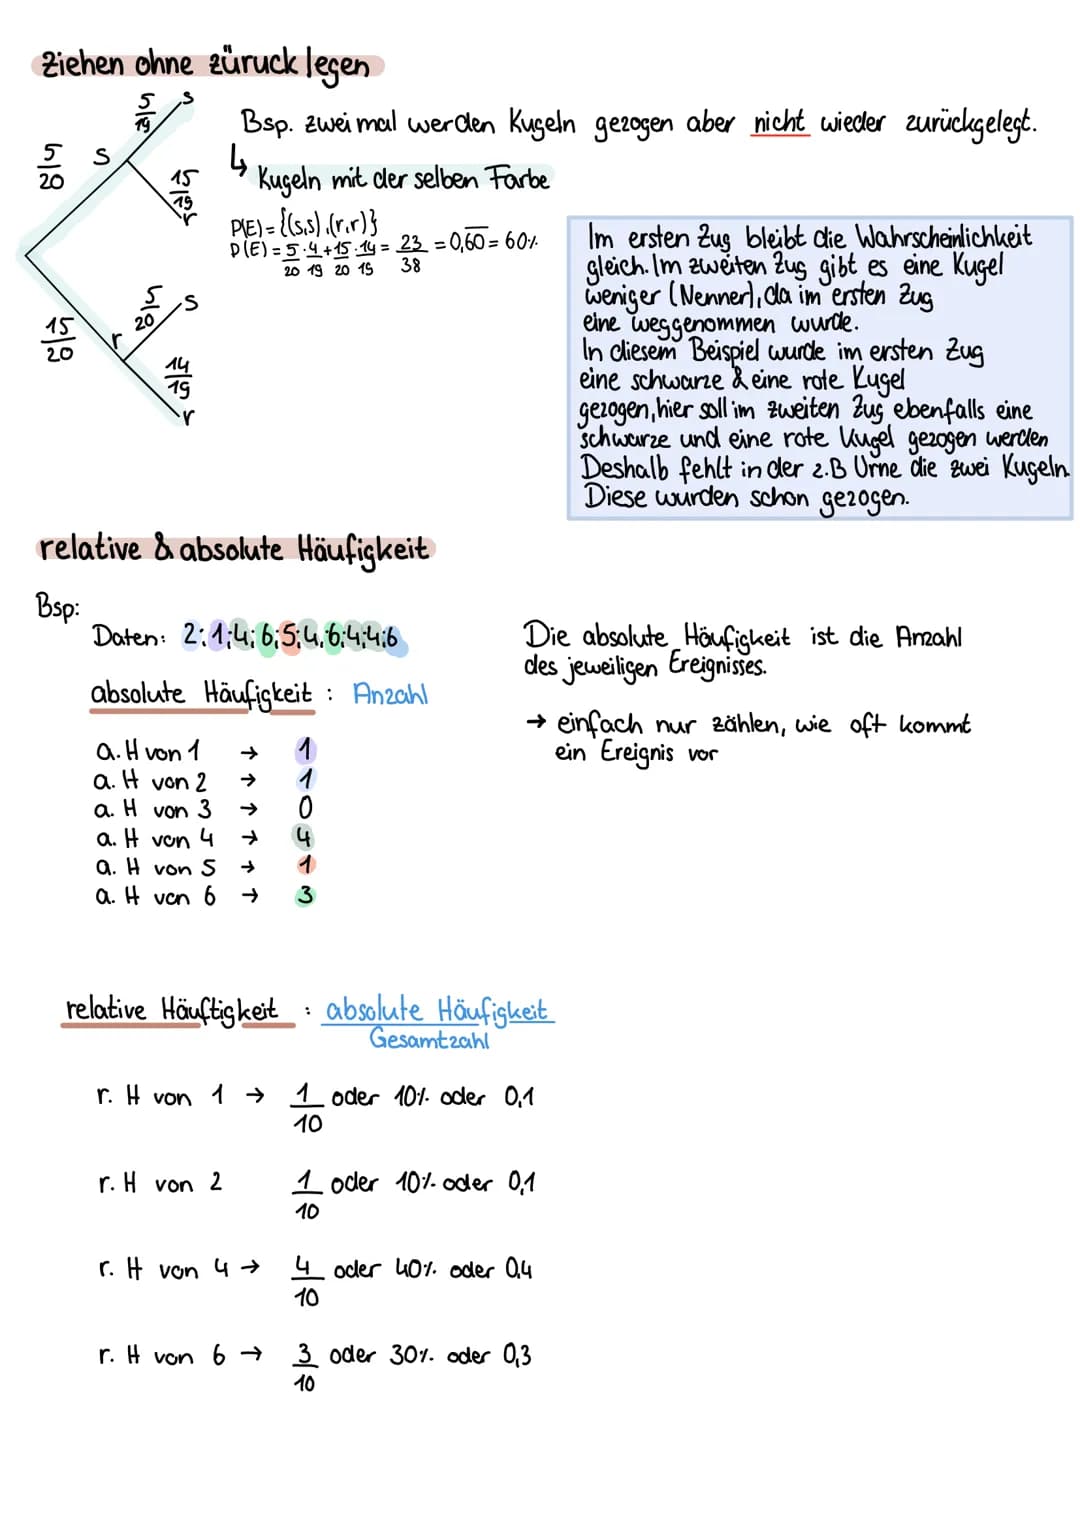 Ziehen ohne züruck legen
5/19 s
5/20 s
15/19 r
15/20 r
5/20 s
14/19 r
Bsp. zweimal werden Kugeln gezogen aber nicht wieder zurückgelegt.
↳ Kugeln mit der selben Farbe
P(E) = {(s,s),(r,r)}
P(E) = 5/20 · 4/19 + 15/20 · 14/19 = 23/38 = 0,60 = 60%
Im ersten Zug bleibt die Wahrscheinlichkeit
gleich. Im zweiten Zug gibt es eine Kugel
weniger (Nenner), da im ersten Zug
eine weggenommen wurde.
In diesem Beispiel wurde im ersten Zug
eine schwarze & eine rote Kugel
gezogen, hier soll im zweiten Zug ebenfalls eine
schwarze und eine rote Kugel gezogen werden
Deshalb fehlt in der 2.B Urne die zwei Kugeln.
Diese wurden schon gezogen.
relative & absolute Häufigkeit
Bsp:
Daten: 2;1;4;6;5;4;6;4;4;6
absolute Häufigkeit : Anzahl
a. H von 1 → 1
a. H von 2 → 1
a. H von 3 → 0
a. H von 4 → 4
a. H von 5 → 1
a. H von 6 → 3
Die absolute Häufigkeit ist die Anzahl
des jeweiligen Ereignisses.
→ einfach nur zählen, wie oft kommt
ein Ereignis vor
relative Häuftigkeit : absolute Häufigkeit
Gesamtzahl
r. H von 1 → 1/10 oder 10% oder 0,1
r. H von 2 1/10 oder 10% oder 0,1
r. H von 4 → 4/10 oder 40% oder 0,4
r. H von 6 → 3/10 oder 30% oder 0,3